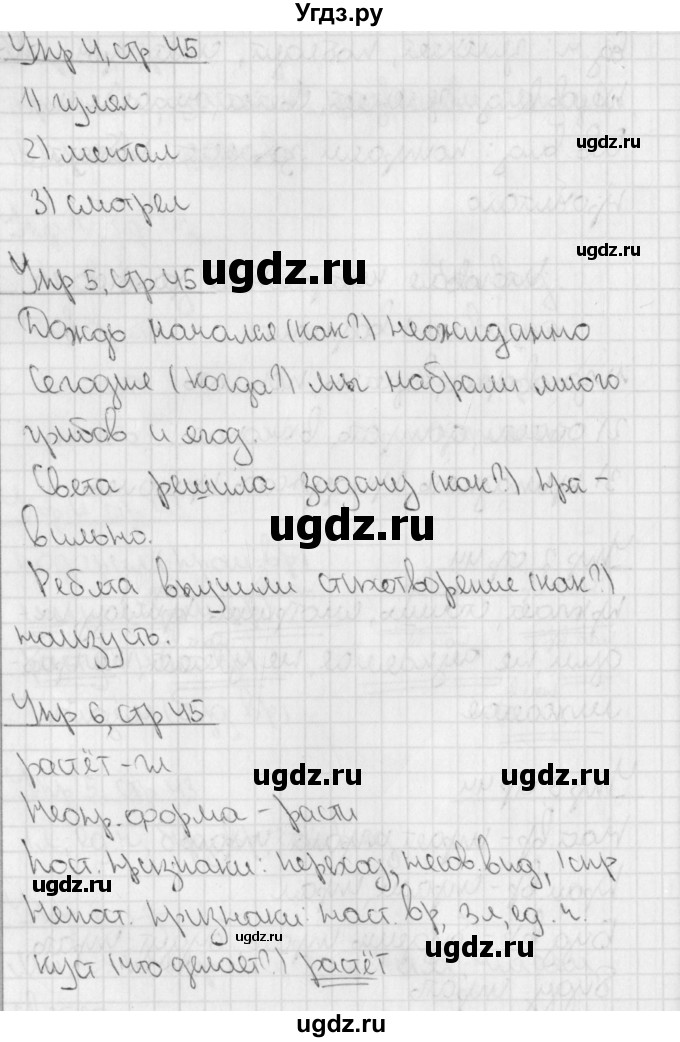 Угдз.ру
Упр 4, стр 45
1) гулял
2) мечтал
ugdz.ru
3) смотрел
ugdz.ru
Упр 5, стр 45
ugdz.ru
Дождь начался (как?) неожиданно
Сегодня (когда?) мы набрали много
грибов и ягод.
Света решила задачу (как?) пра-
вильно.
ugdz.ru
Ребята выучили стихотворение (как?)
наизусть.
Упр 6, стр 45
растёт - гл
ugdz.ru
ugdz.ru
Неопр. форма - расти
Пост. признаки: переход, несов. вид, 1 спр
ugdz.ru
Непост. признаки: наст. вр, 3 л, ед. ч.
ugdz.ru
куст (что делает?) растёт
ugdz.ru
ugdz.ru